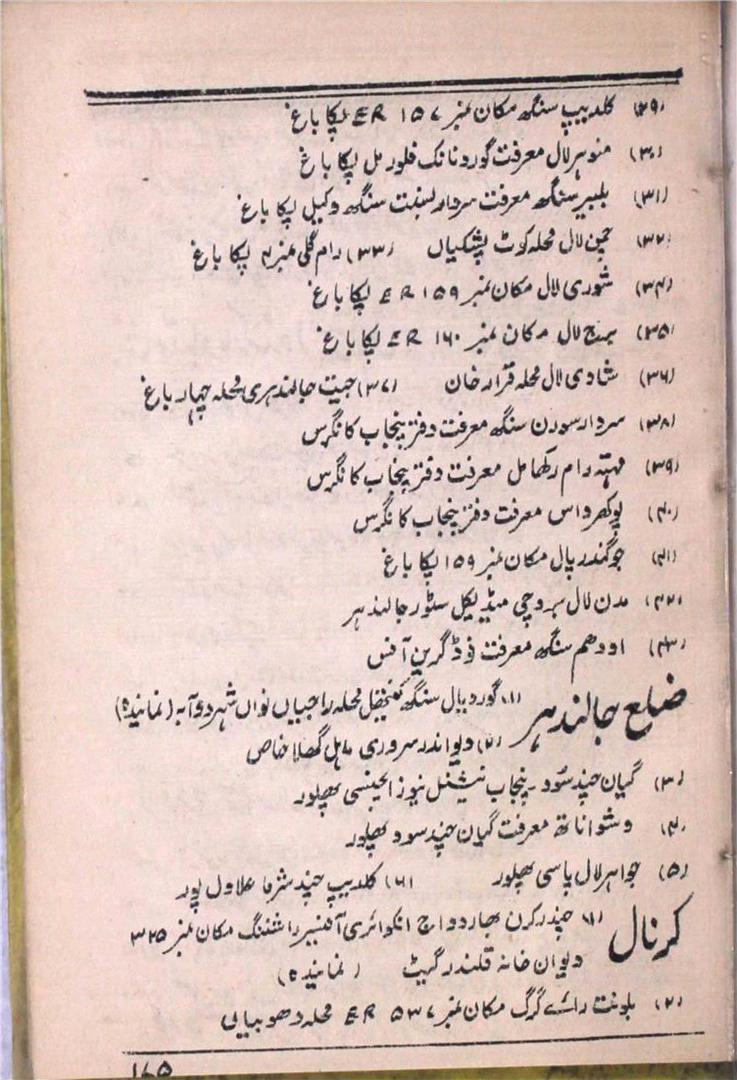 (۲۹) کلدیپ سنگھ مکان نمبر ۱۵۷ ER پکا باغ
(۳۰) منوہر لال معرفت گورو نانک فلور مل پکا باغ
(۳۱) بلبیر سنگھ معرفت سردار بسنت سنگھ وکیل پکا باغ
(۳۲) چمن لال محلہ کوٹ پشکیاں (۳۳) رام گلی نمبر ۴ پکا باغ
(۳۴) شوری لال مکان نمبر ۱۵۹ ER پکا باغ
(۳۵) لال مکان نمبر ۱۶۰ ER پکا باغ
(۳۶) شادی لال محلہ قرار خان (۳۷) جیت جالندہری محلہ چہار باغ
(۳۸) سردار سورن سنگھ معرفت دفتر پنجاب کانگرس
(۳۹) مہتہ رام رکھا مل معرفت دفتر پنجاب کانگرس
(۴۰) پوکھر داس معرفت دفتر پنجاب کانگرس
(۴۱) جوگندر پال مکان نمبر ۱۵۹ پکا باغ
(۴۲) مدن لال بروچی میڈیکل سٹور جالندہر
(۴۳) اودھم سنگھ معرفت فوڈ گرین آفس
ضلع جالندہر (۱) گوردیال سنگھ محلہ راجیاں نواں شہر دوآبہ (نمائندہ)
(۲) دیواندر سروری خاص
(۳) گیان چند سود پنجاب نیشنل نیوز ایجنسی پھلور
(۴) وشوا ناتھ معرفت گیان چند سود پھلور
(۵) جواہر لال پاسی پھلور (۶) کلدیپ چند شرما علاول پور
کرنال (۱) چندر کرن بھاردواج انکوائری آفیسر راشننگ مکان نمبر ۳۲۵
دیوان خانہ قلندر گیٹ (نمائندہ)
(۲) بلونت رائے گرگ مکان نمبر ۵۳۷ ER محلہ
۱۶۵